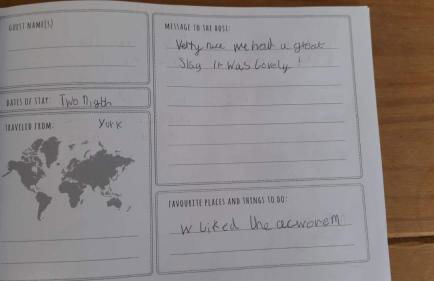 GUEST NAME(S)
DATES OF STAY: Two Nigth
TRAVELED FROM: York
MESSAGE TO THE HOST:
Vetty nice we had a great
Stay it was lovely !
FAVOURITE PLACES AND THINGS TO DO:
w Liked the acworem